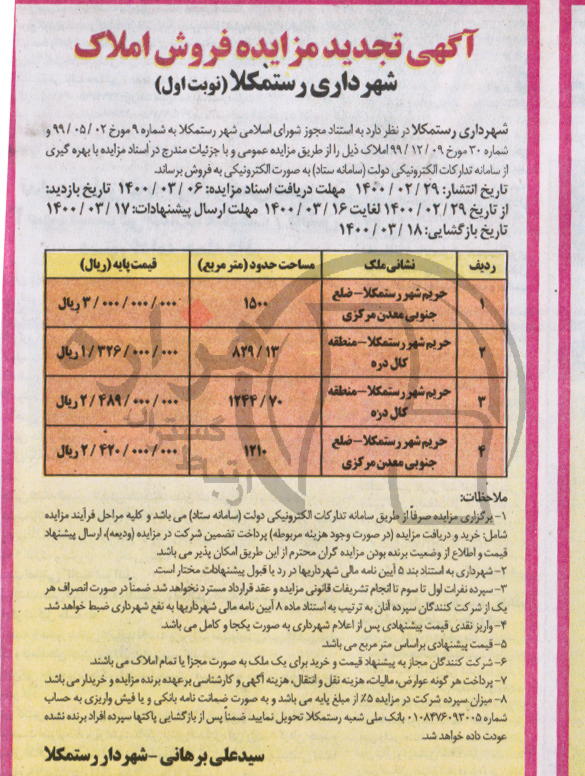 آگهی تجدید مزایده فروش املاک
شهرداری رستمکلا (نوبت اول)
شهرداری رستمکلا در نظر دارد به استناد مجوز شورای اسلامی شهر رستمکلا به شماره ۹ مورخ ۹۹/۰۵/۰۲ و
شماره ۳۰ مورخ ۹۹/۱۲/۰۹ املاک ذیل را از طریق مزایده عمومی و با جزئیات مندرج در اسناد مزایده با بهره گیری
از سامانه تدارکات الکترونیکی دولت (سامانه ستاد) به صورت الکترونیکی به فروش برساند.
تاریخ انتشار: ۱۴۰۰/۰۲/۲۹ مهلت دریافت اسناد مزایده: ۱۴۰۰/۰۳/۰۶ تاریخ بازدید:
از تاریخ ۱۴۰۰/۰۲/۲۹ لغایت ۱۴۰۰/۰۳/۱۶ مهلت ارسال پیشنهادات: ۱۴۰۰/۰۳/۱۷
تاریخ بازگشایی: ۱۴۰۰/۰۳/۱۸
ردیف نشانی ملک مساحت حدود (متر مربع) قیمت پایه (ریال)
۱ حریم شهر رستمکلا – ضلع جنوبی معدن مرکزی ۱۵۰۰ ۳/۰۰۰/۰۰۰/۰۰۰ ریال
۲ حریم شهر رستمکلا – منطقه کال دره ۸۲۹/۱۳ ۱/۳۲۶/۰۰۰/۰۰۰ ریال
۳ حریم شهر رستمکلا – منطقه کال دره ۱۲۴۴/۷۰ ۲/۴۸۹/۰۰۰/۰۰۰ ریال
۴ حریم شهر رستمکلا – ضلع جنوبی معدن مرکزی ۱۲۱۰ ۲/۴۲۰/۰۰۰/۰۰۰ ریال
ملاحظات:
۱- برگزاری مزایده صرفاً از طریق سامانه تدارکات الکترونیکی دولت (سامانه ستاد) می باشد و کلیه مراحل فرآیند مزایده
شامل: خرید و دریافت مزایده (در صورت وجود هزینه مربوطه) پرداخت تضمین شرکت در مزایده (ودیعه)، ارسال پیشنهاد
قیمت و اطلاع از وضعیت برنده بودن مزایده گران محترم از این طریق امکان پذیر می باشد.
۲- شهرداری به استناد بند ۵ آیین نامه مالی شهرداریها در رد یا قبول پیشنهادات مختار است.
۳- سپرده نفرات اول تا سوم تا انجام تشریفات قانونی مزایده و عقد قرارداد مسترد نخواهد شد. ضمناً در صورت انصراف هر
یک از شرکت کنندگان سپرده آنان به ترتیب به استناد ماده ۸ آیین نامه مالی شهرداریها به نفع شهرداری ضبط خواهد شد.
۴- واریز نقدی قیمت پیشنهادی پس از اعلام شهرداری به صورت یکجا و کامل می باشد.
۵- قیمت پیشنهادی براساس متر مربع می باشد.
۶- شرکت کنندگان مجاز به پیشنهاد قیمت و خرید برای یک ملک به صورت مجزا یا تمام املاک می باشند.
۷- پرداخت هر گونه عوارض، مالیات، هزینه نقل و انتقال، هزینه آگهی و کارشناسی بر عهده برنده مزایده و خریدار می باشد.
۸- میزان سپرده شرکت در مزایده ۵٪ از مبلغ پایه می باشد و به صورت ضمانت نامه بانکی و یا فیش واریزی به حساب
شماره ۰۱۰۸۴۷۶۰۹۳۰۰۵ بانک ملی شعبه رستمکلا تحویل نمایید. ضمناً پس از بازگشایی پاکتها سپرده افراد برنده نشده
عودت داده خواهد شد.
سیدعلی برهانی – شهردار رستمکلا
هزاره
گستران